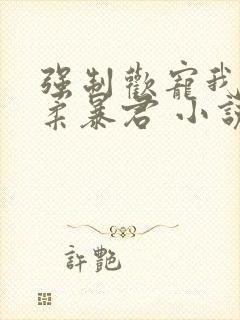 強制歡寵我
柔暴君 小說
許艷